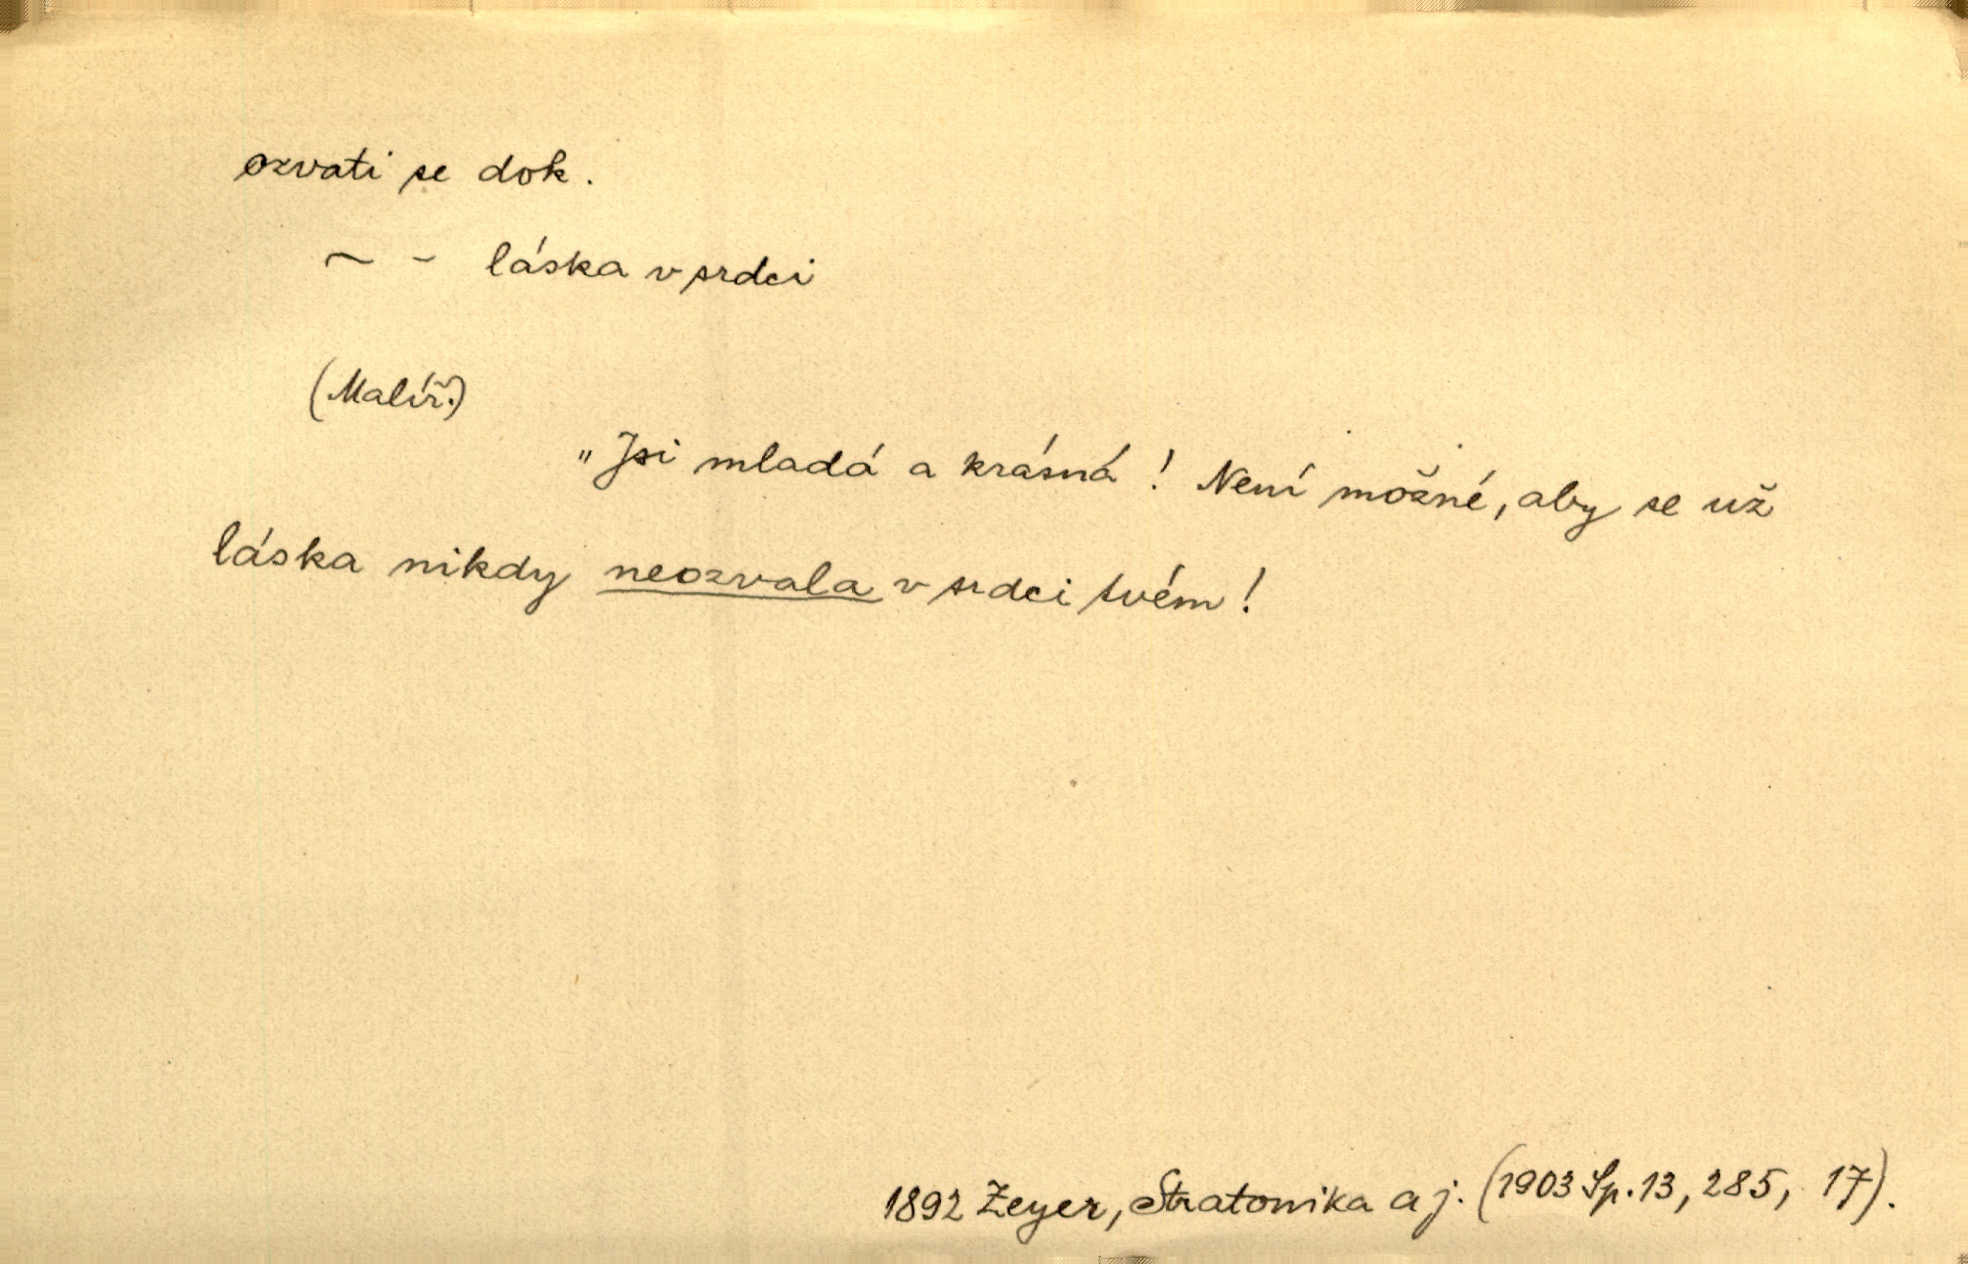 ozvati se dok.
~ - láska v srdci
(Malíř.)
„Jsi mladá a krásná! Není možné, aby se už
láska nikdy neozvala v srdci tvém!
1892 Zeyer, Stratonika a j. (1903 Sp. 13, 285, 17).